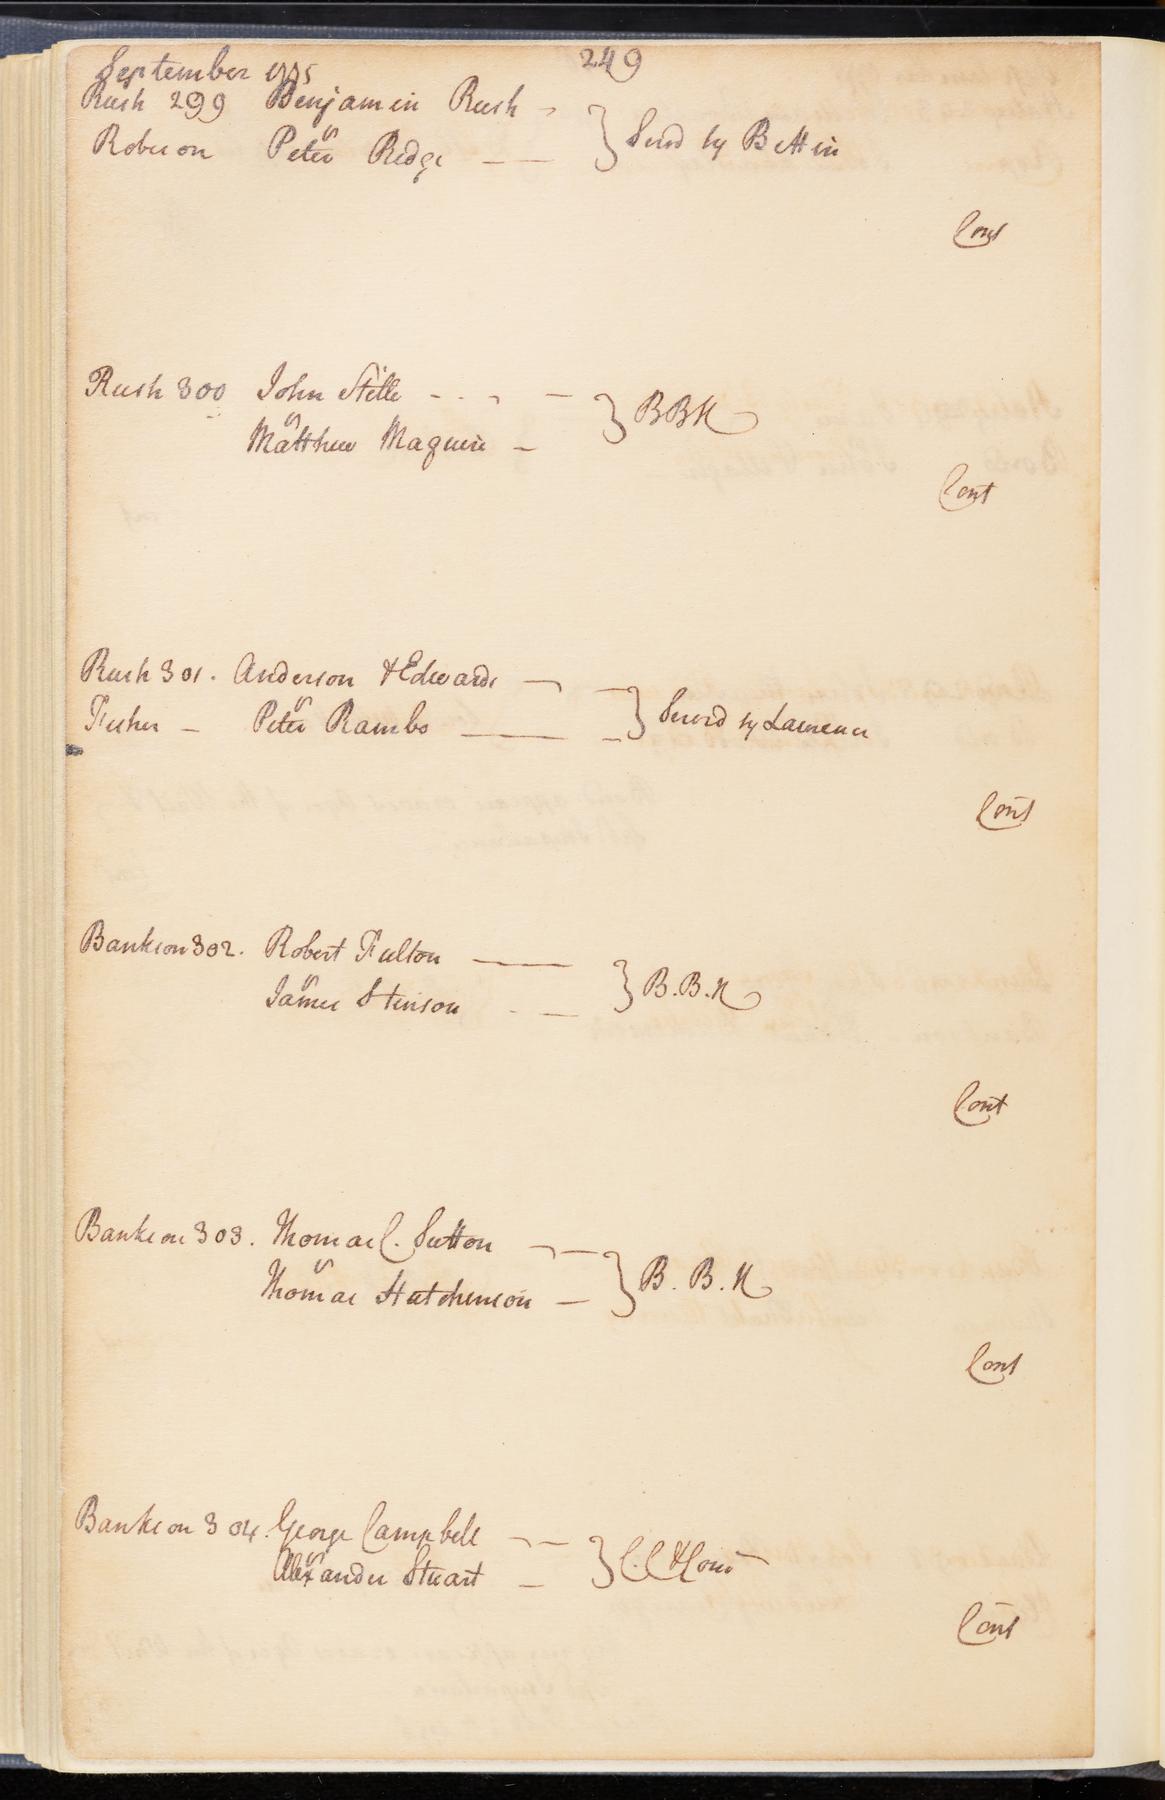 249
September 1775
Rush 299 Benjamin Rush
vs
Roberson Peter Redge } Servd by Bettin
Cont
Rush 300 John Stille } BBN
vs
Matthew Maguire
Cont
Rush 301. Anderson & Edwards
vs
Fisher Peter Rambo } Servd by Lawrence
Cont
Bankson 302. Robert Fulton
vs } B. B. N
James Stinson
Cont
Bankson 303. Thomas C. Sutton
vs } B. B. N
Thomas Hutchinson
Cont
Bankson 304. George Campbell
vs } C. C & Cont
Alexander Stuart
Cont